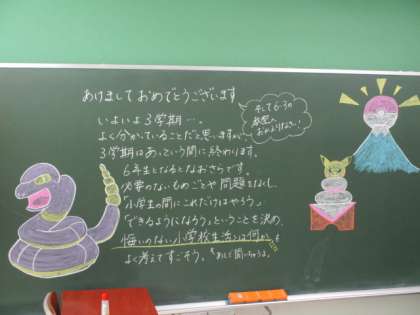 あけましておめでとうございます
そして6-3の
教室へ
おかえりなさい!
いよいよ3学期…。
よく分かっていることだと思いますが、
3学期はあっという間に終わります。
6年生となるとなおさらです。
必要のないものごとや問題をなくし、
「小学生の間にこれだけはやろう」
「できるようになろう」ということを決め、
悔いのない小学校生活とは何かを
よく考えてすごそう。